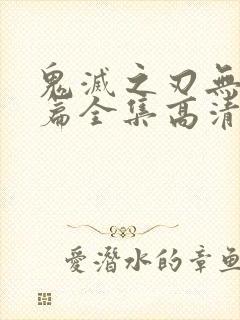 鬼滅之刃無
篇全集高清
愛潛水的章魚